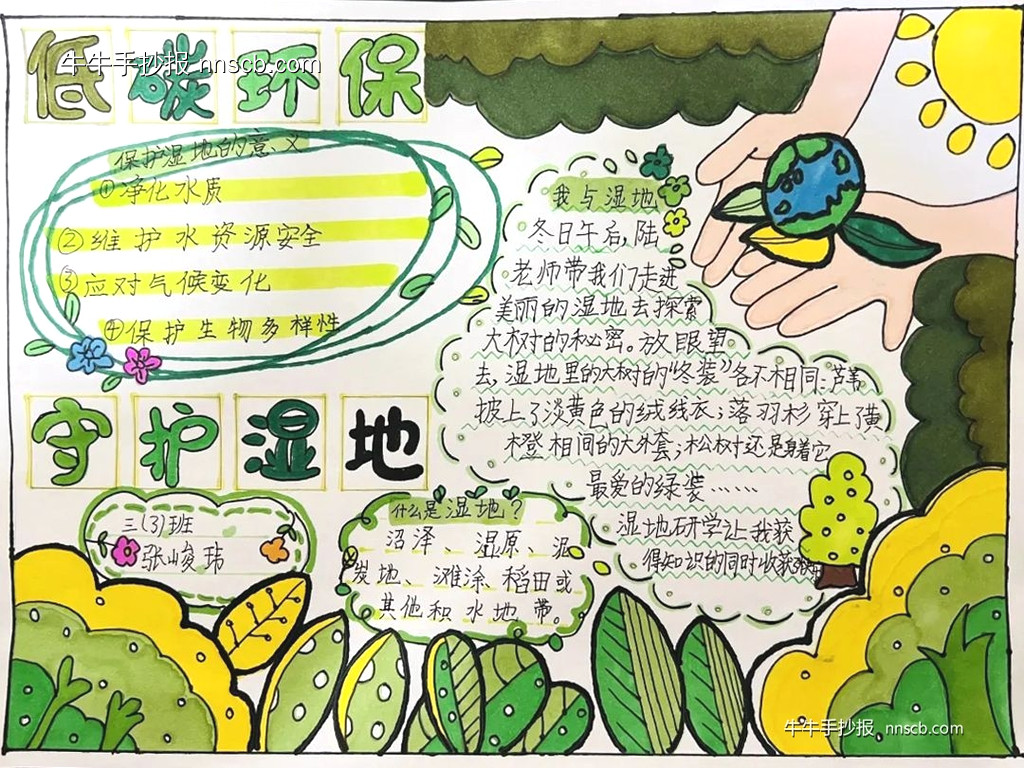 低碳环保
牛牛手抄报 nnscb.com
保护湿地的意义
①净化水质
②维护水资源安全
③应对气候变化
④保护生物多样性
守护湿地
三(3)班
张峻玮
什么是湿地?
沼泽、湿原、泥
炭地、滩涂、稻田或
其他积水地带。
我与湿地
冬日午后,陆
老师带我们走进
美丽的湿地去探索
大树的秘密。放眼望
去,湿地里的大树的“冬装”各不相同:芦苇
披上了淡黄色的绒线衣;落羽杉穿上了黄
橙相间的大外套;松树还是身着它
最爱的绿装……
湿地研学让我获
得知识的同时收获
牛牛手抄报 nnscb.com